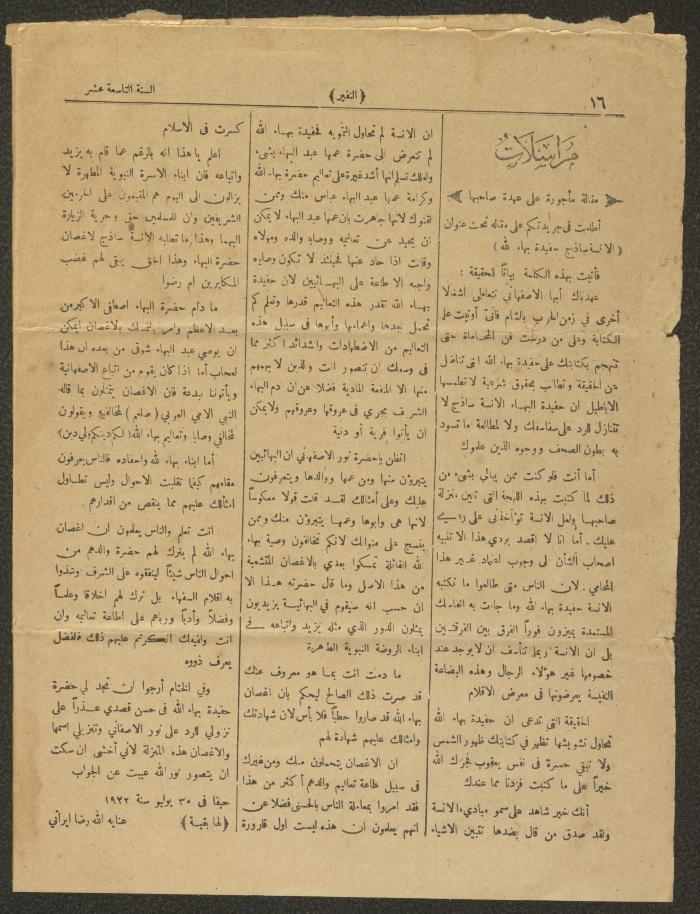 ١٦
﴿ النفير ﴾
السنة التاسعة عشر
مراسلات
مقالة مأجورة على عهدة صاحبها
أطلعت في جريدتكم على مقاله تحت عنوان
( الانسة ساذج حفيدة بهاء لله )
فأتيت بهذه الكلمة بياناً للحقيقة :
عهدناك أيها الاصفهاني تتعاطى اشغالا
أخرى في زمن الحرب بالشام فأنى أوتيت على
الكتابة وعلى من درست فن المحاماة حتى
تتهجم بكتابتك على حفيدة بهاء الله التي تناضل
عن الحقيقة وتطالب بحقوق شرعية لا تطمسها
الاباطيل ان حفيدة البهاء الانسة ساذج لا
تتنازل للرد على سفاسفك ولا لمطالعة ما تسود
به بطون الصحف ووجوه الذين علموك
أما أنت فلو كنت ممن يبالي بشيء من
ذلك لما كتبت بهذه اللهجة التي تبين منزلة
صاحبها ولعل الانسة تؤاخذني على ردي
عليك . أما انا لا اقصد بردي هذا الا تنبيه
اصحاب الشأن الى وجوب اعتماد غير هذا
المحامي . لان الناس متى طالعوا ما تكتبه
الانسة حفيدة بهاء الله وما جاءت به اتفامك
المستمدة يميزون فوراً الفرق بين الفرقتين
بل ان الانسة ربما تتأسف ان لا يوجد عند
خصومها غير هؤلاء الرجال وهذه البضاعة
النفيسة يعرضونها في معرض الاقلام
الحقيقة التي تدعى ان حفيدة بهاء الله
تحاول تشويشها تظهر في كتابتك ظهور الشمس
ولا تبقي حسرة في نفس يعقوب فجزاك الله
خيراً على ما كتبت فزدنا مما عندك
أنك خير شاهد على سمو مبادىء الانسة
ولقد صدق من قال بضدها تتبين الاشياء
ان الانسة لم تحاول التمويه فحفيدة بهاء الله
لم تتعرض الى حضرة عمها عبد البهاء بشيء
ولعلك تسلم انها أشد غيرة على تعاليم حضرة بهاء الله
وكرامة عمها عبد البهاء عباس منك وممن
لقنوك لانها جاهرت بان عمها عبد البهاء لا يمكن
ان يحيد عن تعاليمه ووصايا والده ومولاه
وقالت اذا حاد عنها فحينئذ لا تكون وصاياه
واجبه الاطاعة على البهائيين لان حفيدة
بهاء الله تقدر هذه التعاليم قدرها وتعلم كم
تحمل جدها واعمامها وأبوها في سبيل هذه
التعاليم من الاضطهادات والشدائد اكثر مما
في وسعك ان تتصور انت والذين لا يهمهم
منها الا المنفعة المادية فضلا عن ان دم البهاء
الشريف يجري في عروقها وعروقهم ولا يمكن
ان يأتوا فرية أو دنية
اتظن يا حضرة نور الاصفهاني ان البهائيين
يتبرؤن منها ومن عمها ووالدها ويتعرفون
عليك وعلى أمثالك لقد قلت قولا معكوساً
لانها هي وابوها وعمها يتبرؤن منك وممن
ينسج على منوالك لانكم تخالفون وصية بهاء
الله القائلة تمسكوا بعدي بالاغصان المنشعبة
من هذا الاصل وما قال حضرته هذا الا
ان حسب انه سيقوم في البهائية يزيديون
يمثلون الدور الذي مثله يزيد واتباعه في
ابناء الروضة النبوية الطاهرة
ما دمت انت بما هو معروف عنك
قد صرت ذلك الصالح ليحكم بان اغصان
بهاء الله قد صاروا حطباً فلا بأس لان شهادتك
وامثالك عليهم شهادة لهم
ان الاغصان يتحملون منك ومن غيرك
في سبيل طاعة تعاليم والدهم أكثر من هذا
فقد امروا بمعاملة الناس بالحسنى فضلا عن
انهم يعلمون ان هذه ليست اول قارورة
كسرت في الاسلام
اعلم يا هذا انه بالرغم عما قام به يزيد
واتباعه فان ابناء الاسرة النبوية المطهرة لا
يزالون الى اليوم هم المقيمون على الحرمين
الشريفين وان للمسلمين حق وحرية الزيارة
اليهما وهذا ما تطالبه الانسة ساذج لاغصان
حضرة البهاء وهذا الحق يبقى لهم غضب
المكابرين ام رضوا
ما دام حضرة البهاء اصطفى الاكبر من
بعد الاعظم وامر بتمسك بالاغصان ايمكن
ان يوصي عبد البهاء شوقي من بعده ان هذا
لعجاب أما اذا كان يقوم من اتباع الاصفهانية
ويأتوننا ببدعة فان الاغصان يتمثلون بما قاله
النبي الامي العربي ( صلعم ) لمخالفيه ويقولون
لمخالفي وصايا وتعاليم بهاء الله ( لكم دينكم ولي دين )
أما ابناء بهاء الله واحفاده فالناس يعرفون
مقامهم كيفما تقلبت الاحوال وليس تطاول
امثالك عليهم مما ينقص من اقدارهم
انت تعلم والناس يعلمون ان اغصان
بهاء الله لم يترك لهم حضرة والدهم من
احوال الناس شيئاً لينفقوه على الشرف وشذوا
به اقلام السفهاء بل ترك لهم اخلاقا وعلماً
وفضلاً وأدباً ورباهم على اطاعة تعاليمه وان
انت ولفيفك انكرتم عليهم ذلك فالفضل
يعرف ذووه
وفي الختام أرجوا ان تجد لي حضرة
حفيدة بهاء الله في حسن قصدي عذراً على
نزولي للرد على نور الاصفاني وتنزيلي اسمها
والاغصان هذه المنزلة لاني أخشى ان سكت
ان يتصور نور الله عييت عن الجواب
حيفا في ٣٠ يوليو سنة ١٩٢٢
﴿ لها بقية ﴾ عنايه الله رضا ايراني